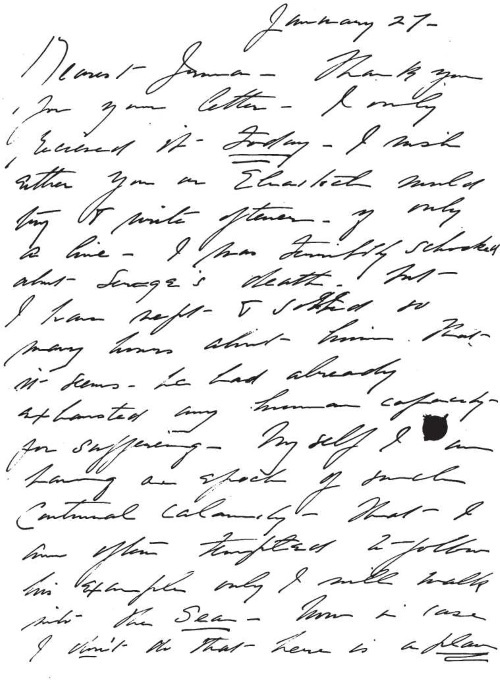 January 27-
Dearest Irma - Thank you
for your letter - I only
recieved it - today - I wish
either you or Elizabeth would
try & write oftener - if only
a line - I was terribly schocked
about Serage's death. but -
I have wept & sobbed so
many hours about him. That -
it seems - he had already
exhausted any human capacity -
for suffering - Myself I am
having an epoch of such
Continual Calamity - that - I
am often tempted to follow
his example only I will walk
into the Sea - Now in case
I don't do that here is a plan